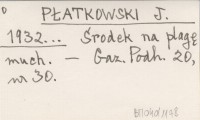 PŁATKOWSKI J.
1932... Środek na plagę
much. — Gaz. Podh. 20,
nr 30.